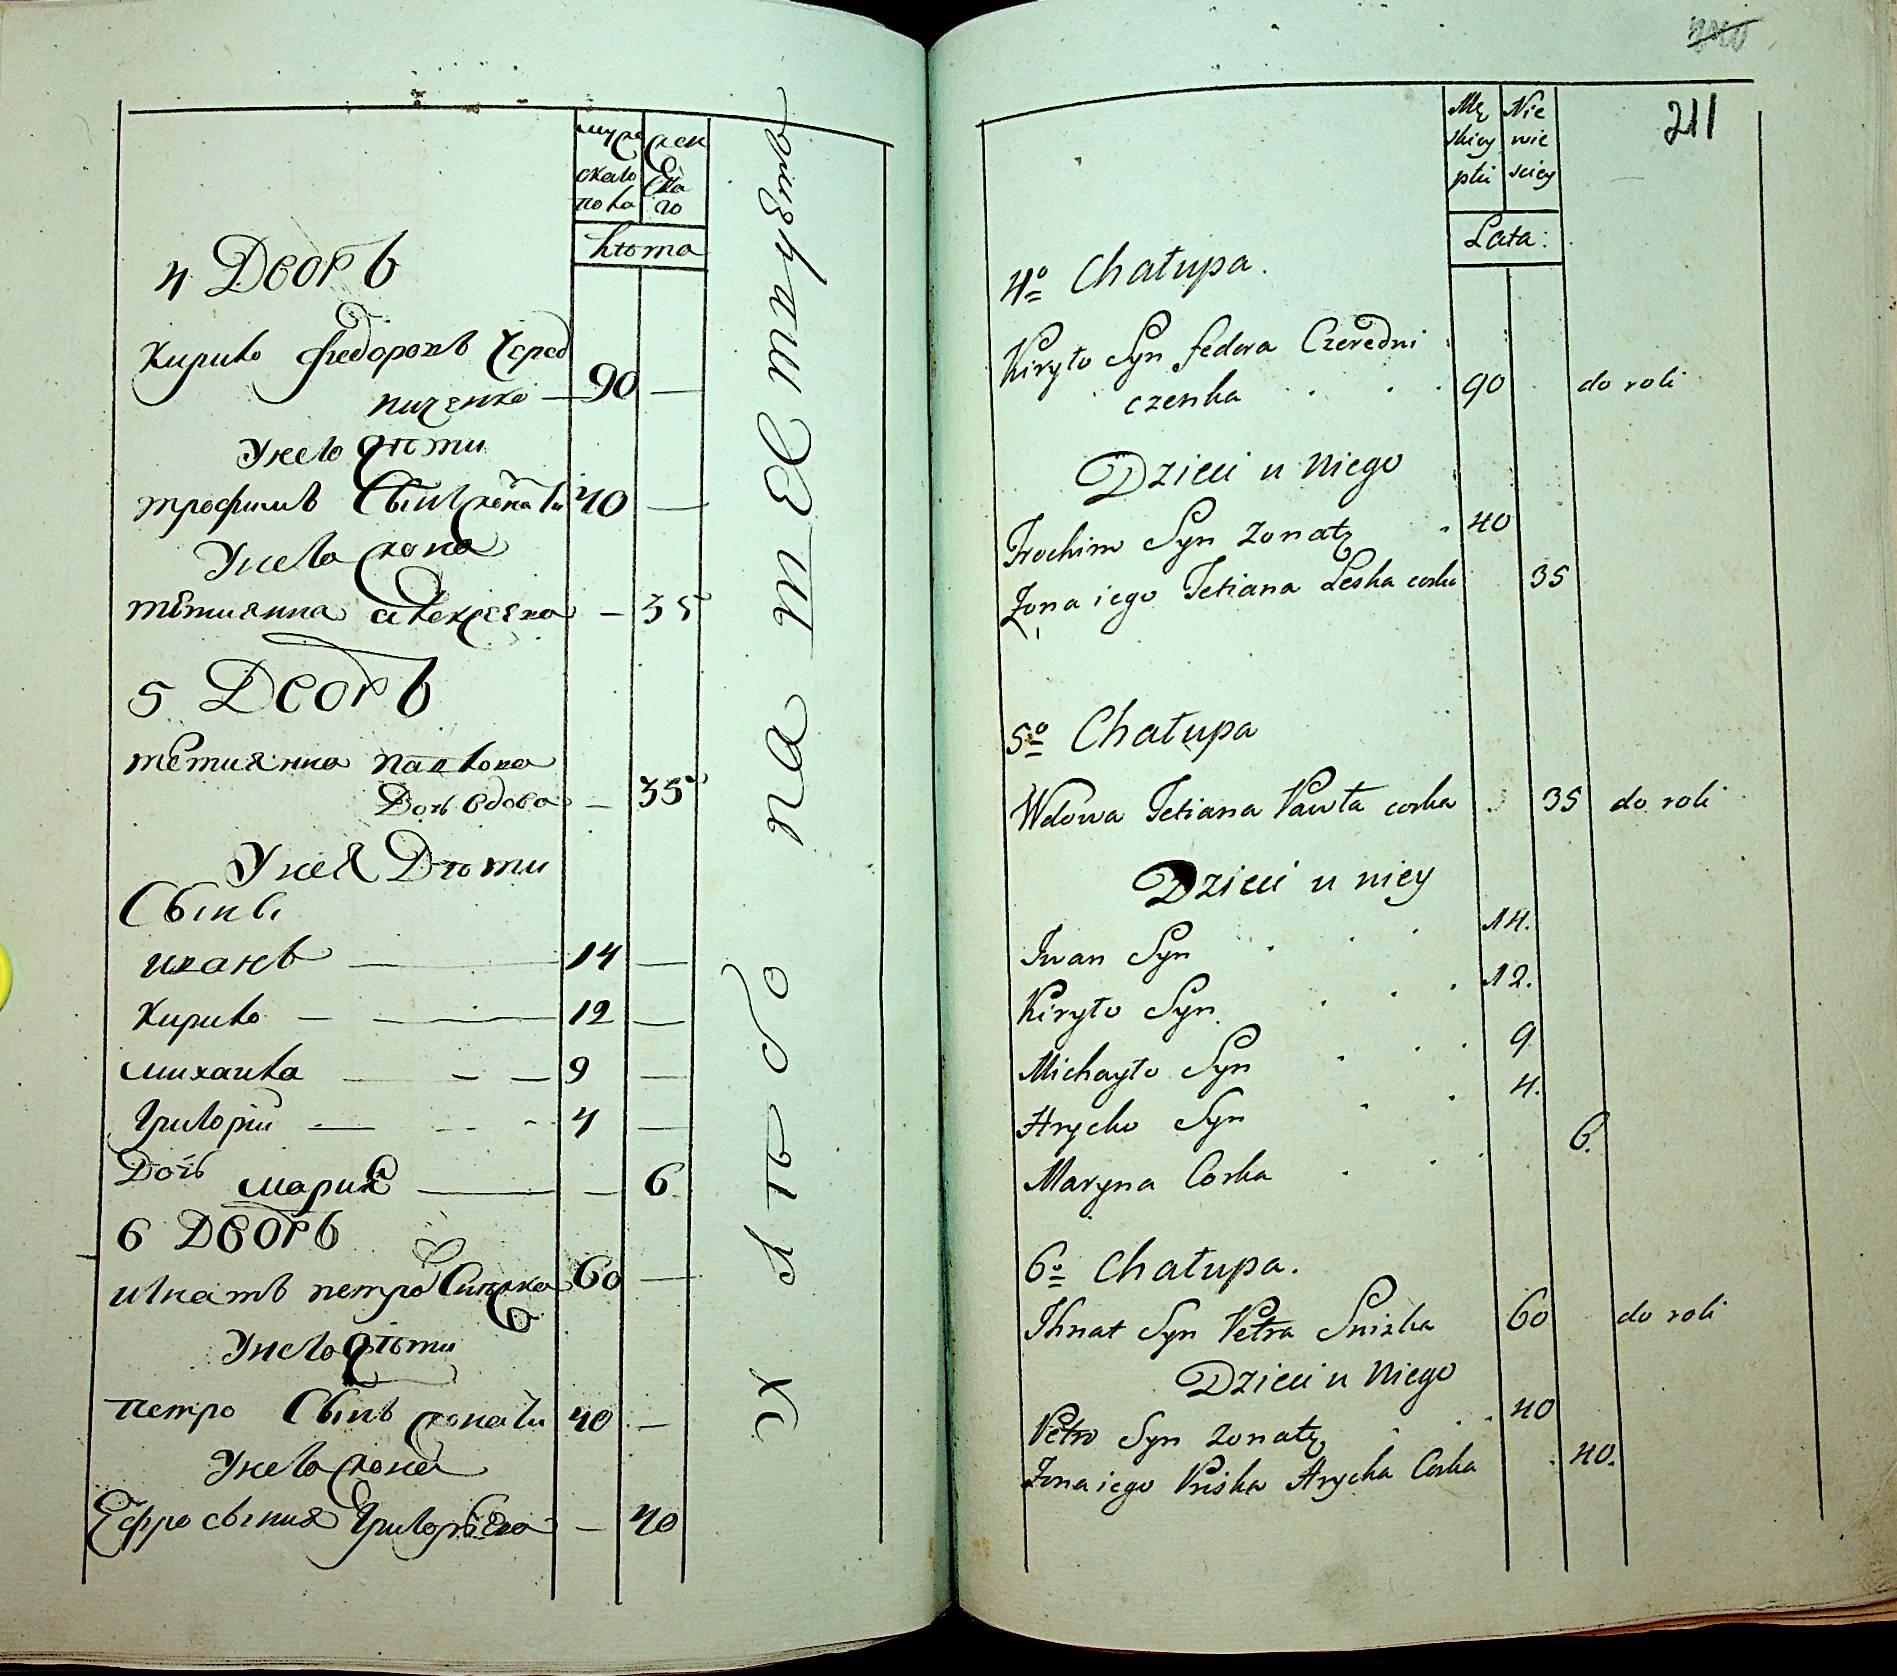 муже
скаго
пола
жен
ска
го
лѣта
4 Дворъ
Кирило Федоровъ Черед
ниченко 90
У него дѣти
трофимъ Сынъ женаты 40
У него жона
тетиянна алексеева 35
5 Дворъ
тетиянна павлова
Дочь вдова 35
У нея Дѣти
Сыны
иванъ 14
Кирило 12
михаила 9
григорiи 4
Дочь мария 6
6 Дворъ
игнатъ петро Снѣжка 60
У него дѣти
петро Сынъ женаты 40
У него жона
Ефросыния григорьева 40
Къ хлѣбо
211
Mę
skiey
płci
Nie
wie
sciey
Lata:
4º Chałupa.
Kiryło Syn fedora Czeredni
czenka 90 do roli
Dzieci u Niego
Trochim Syn zonaty 40
Zona iego Tetiana Leska corka 35
5º Chałupa
Wdowa Tetiana Pawła corka 35 do roli
Dzieci u niey
Iwan Syn 14.
Kiryło Syn 12.
Michayło Syn 9
Hrycko Syn 4.
Maryna Corka 6.
6º Chałupa.
Ihnat Syn Petra Snizka 60 do roli
Dzieci u Niego
Petro Syn zonaty 40
Zona iego Priska Hrycka Corka 40.